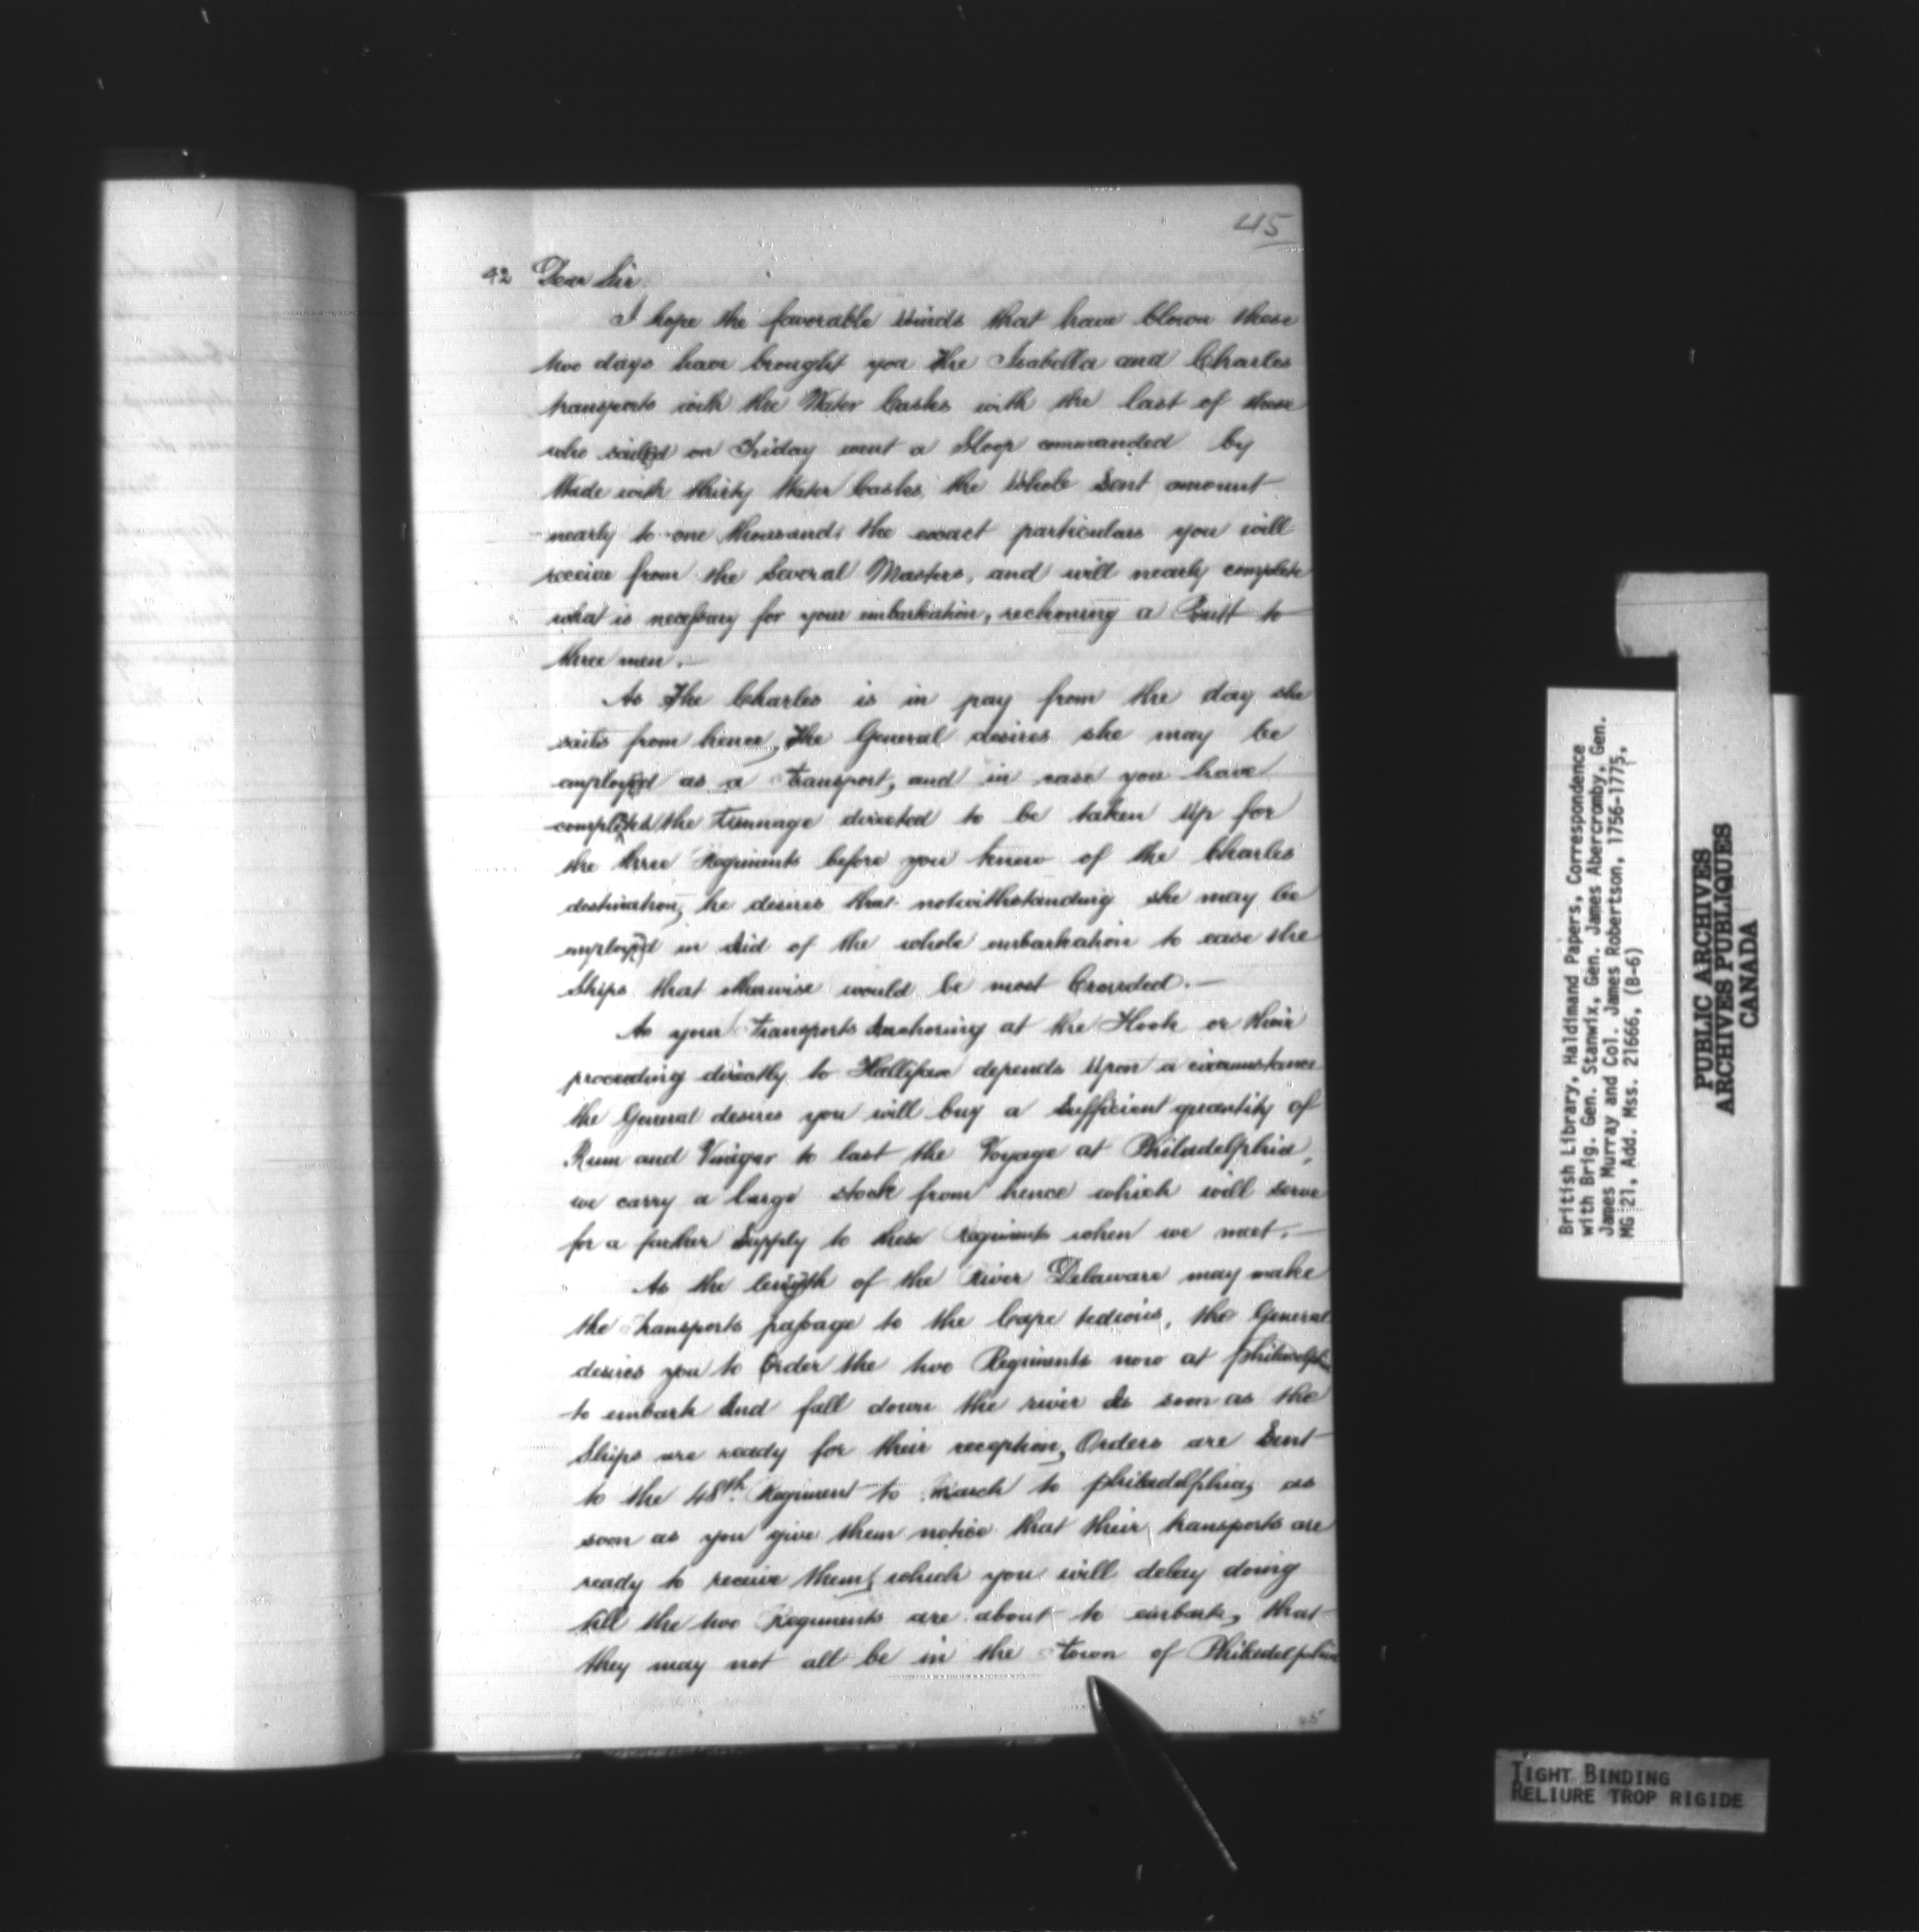 45
42 Dear Sir.
I hope the favorable Winds that have blown these
two days have brought you the Isabella and Charles
transports with the Water Casks with the last of these
who sailed on Friday went a Sloop commanded by
Wade with thirty Water Casks, the Whole Sent amount
nearly to one thousand, the exact particulars you will
receive from the Several Masters, and will nearly complete
what is necessary for your embarkation, reckoning a Butt to
three men.—
As The Charles is in pay from the day she
sails from hence, The General desires she may be
employed as a transport, and in case you have
completed the Tunnage directed to be taken Up for
the three Regiments before you knew of the Charles
destination, he desires that notwithstanding she may be
employed in Aid of the whole embarkation to ease the
Ships that otherwise would be most Crowded.—
As your Transports Anchoring at the Hook or their
proceeding directly to Hallifax depends Upon a circumstance
the General desires you will buy a Sufficient quantity of
Rum and Vinegar to last the Voyage at Philadelphia,
we carry a large stock from hence which will serve
for a farther Supply to these regiments when we meet.—
As the length of the river Delaware may make
the Transports passage to the Cape tedious, the General
desires you to Order the two Regiments now at philadelphia
to embark And fall down the river As soon as the
Ships are ready for their reception, Orders are Sent
to the 48th. Regiment to march to philadelphia, as
soon as you give them notice that their transports are
ready to receive them, which you will delay doing
till the two Regiments are about to embark, that
they may not all be in the town of Philadelphia
45
British Library, Haldimand Papers, Correspondence
with Brig. Gen. Stanwix, Gen. James Abercromby, Gen.
James Murray and Col. James Robertson, 1756-1775,
MG 21, Add. Mss. 21666, (B-6)
PUBLIC ARCHIVES
ARCHIVES PUBLIQUES
CANADA
TIGHT BINDING
RELIURE TROP RIGIDE